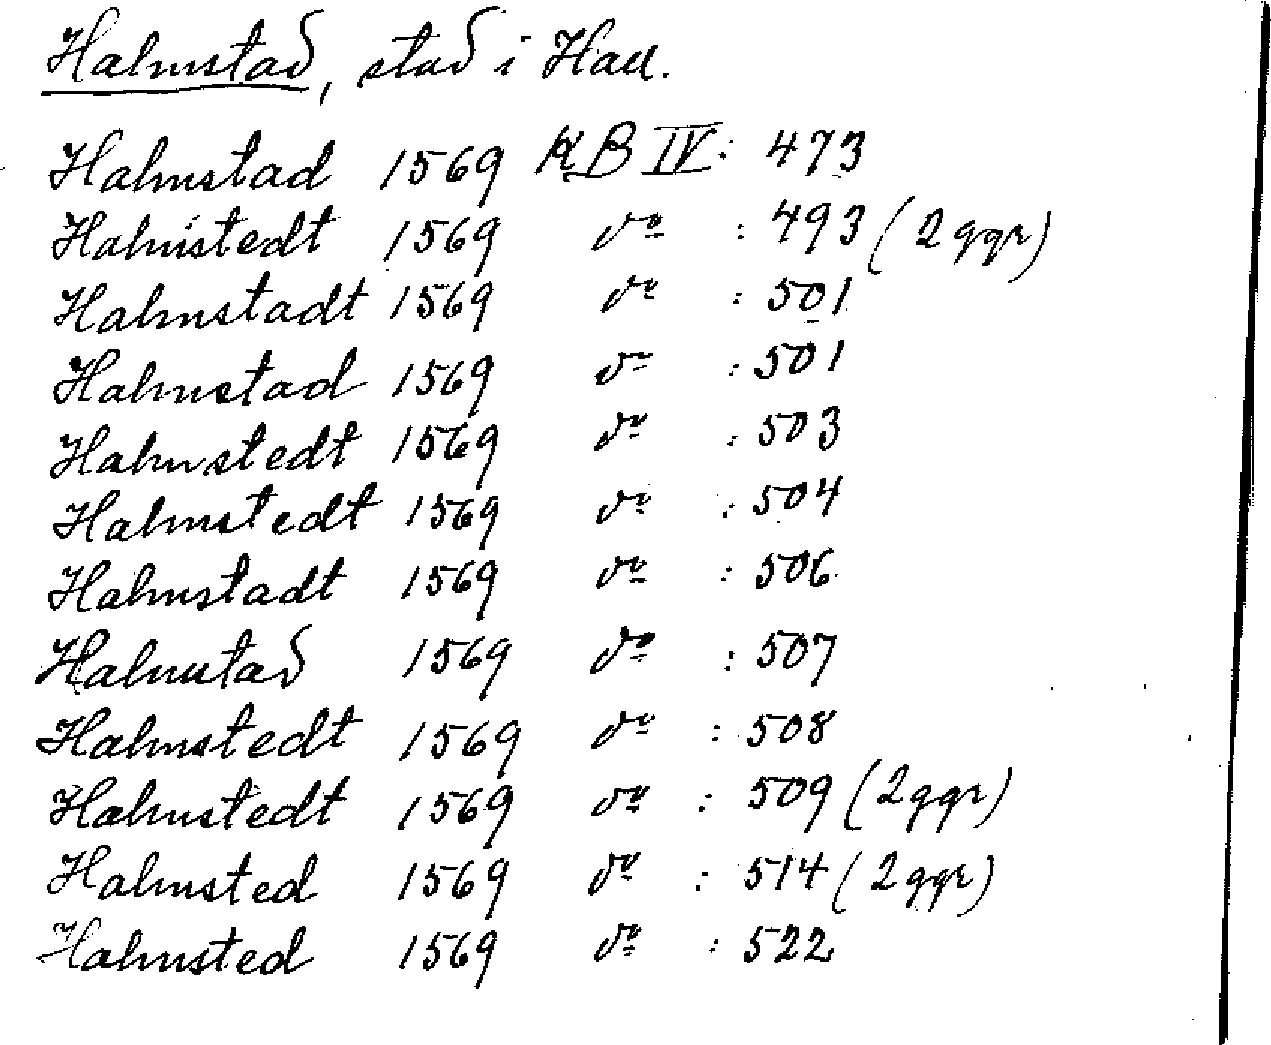 Halmstad, stad i Hall.
Halmstad 1569 KB IV: 473
Halmstedt 1569 do : 493 (2 ggr)
Halmstadt 1569 do : 501
Halmstad 1569 do : 501
Halmstedt 1569 do : 503
Halmstedt 1569 do : 504
Halmstadt 1569 do : 506
Halmstad 1569 do : 507
Halmstedt 1569 do : 508
Halmstedt 1569 do : 509 (2 ggr)
Halmsted 1569 do : 514 (2 ggr)
Halmsted 1569 do : 522